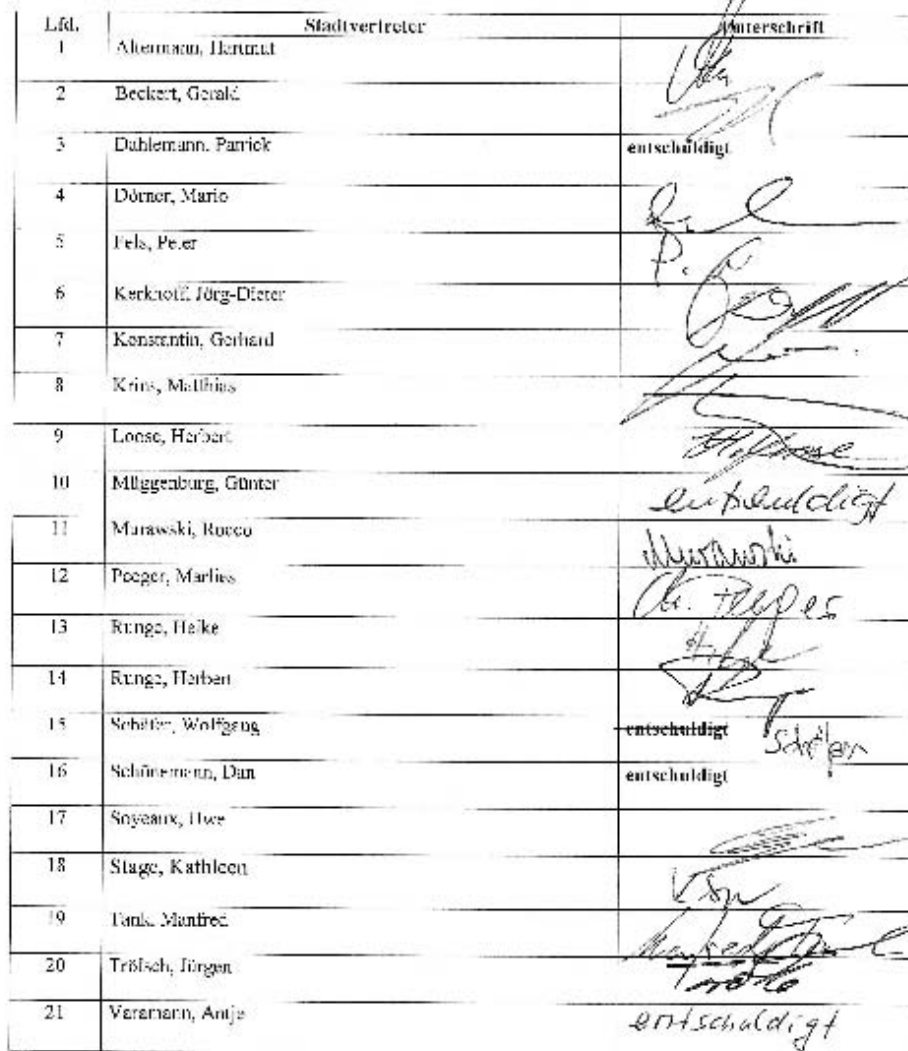 Lfd. Stadtvertreter Unterschrift
1 Altermann, Hartmut
2 Beckert, Gerald
3 Dahlemann, Patrick entschuldigt
4 Dörner, Mario
5 Fels, Peter P.
6 Kerkhoff, Jörg-Dieter
7 Konstantin, Gerhard
8 Krins, Matthias
9 Loose, Herbert
10 Müggenburg, Günter entschuldigt
11 Murawski, Rocco Murawski
12 Peeger, Marlies
13 Runge, Heike
14 Runge, Herbert
15 Schäfer, Wolfgang entschuldigt Schäfer
16 Schünemann, Dan entschuldigt
17 Soyeaux, Uwe
18 Stage, Kathleen
19 Tank, Manfred Manfred
20 Trölsch, Jürgen
21 Varamann, Antje entschuldigt